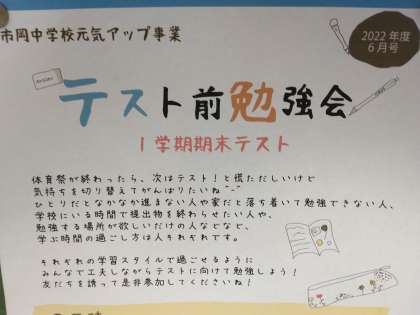 市岡中学校元気アップ事業
2022年度
6月号
テスト前勉強会
1学期期末テスト
体育祭が終わったら、次はテスト!と慌ただしいけど
気持ちを切り替えてがんばりたいね^-^
ひとりだとなかなか進まない人や家だと落ち着いて勉強できない人、
学校にいる時間で提出物を終わらせたい人や、
勉強する場所が欲しいだけの人などなど、
学ぶ時間の過ごし方は人それぞれです。
それぞれの学習スタイルで過ごせるように
みんなで工夫しながらテストに向けて勉強しよう!
友だちを誘って是非参加してくださいね!